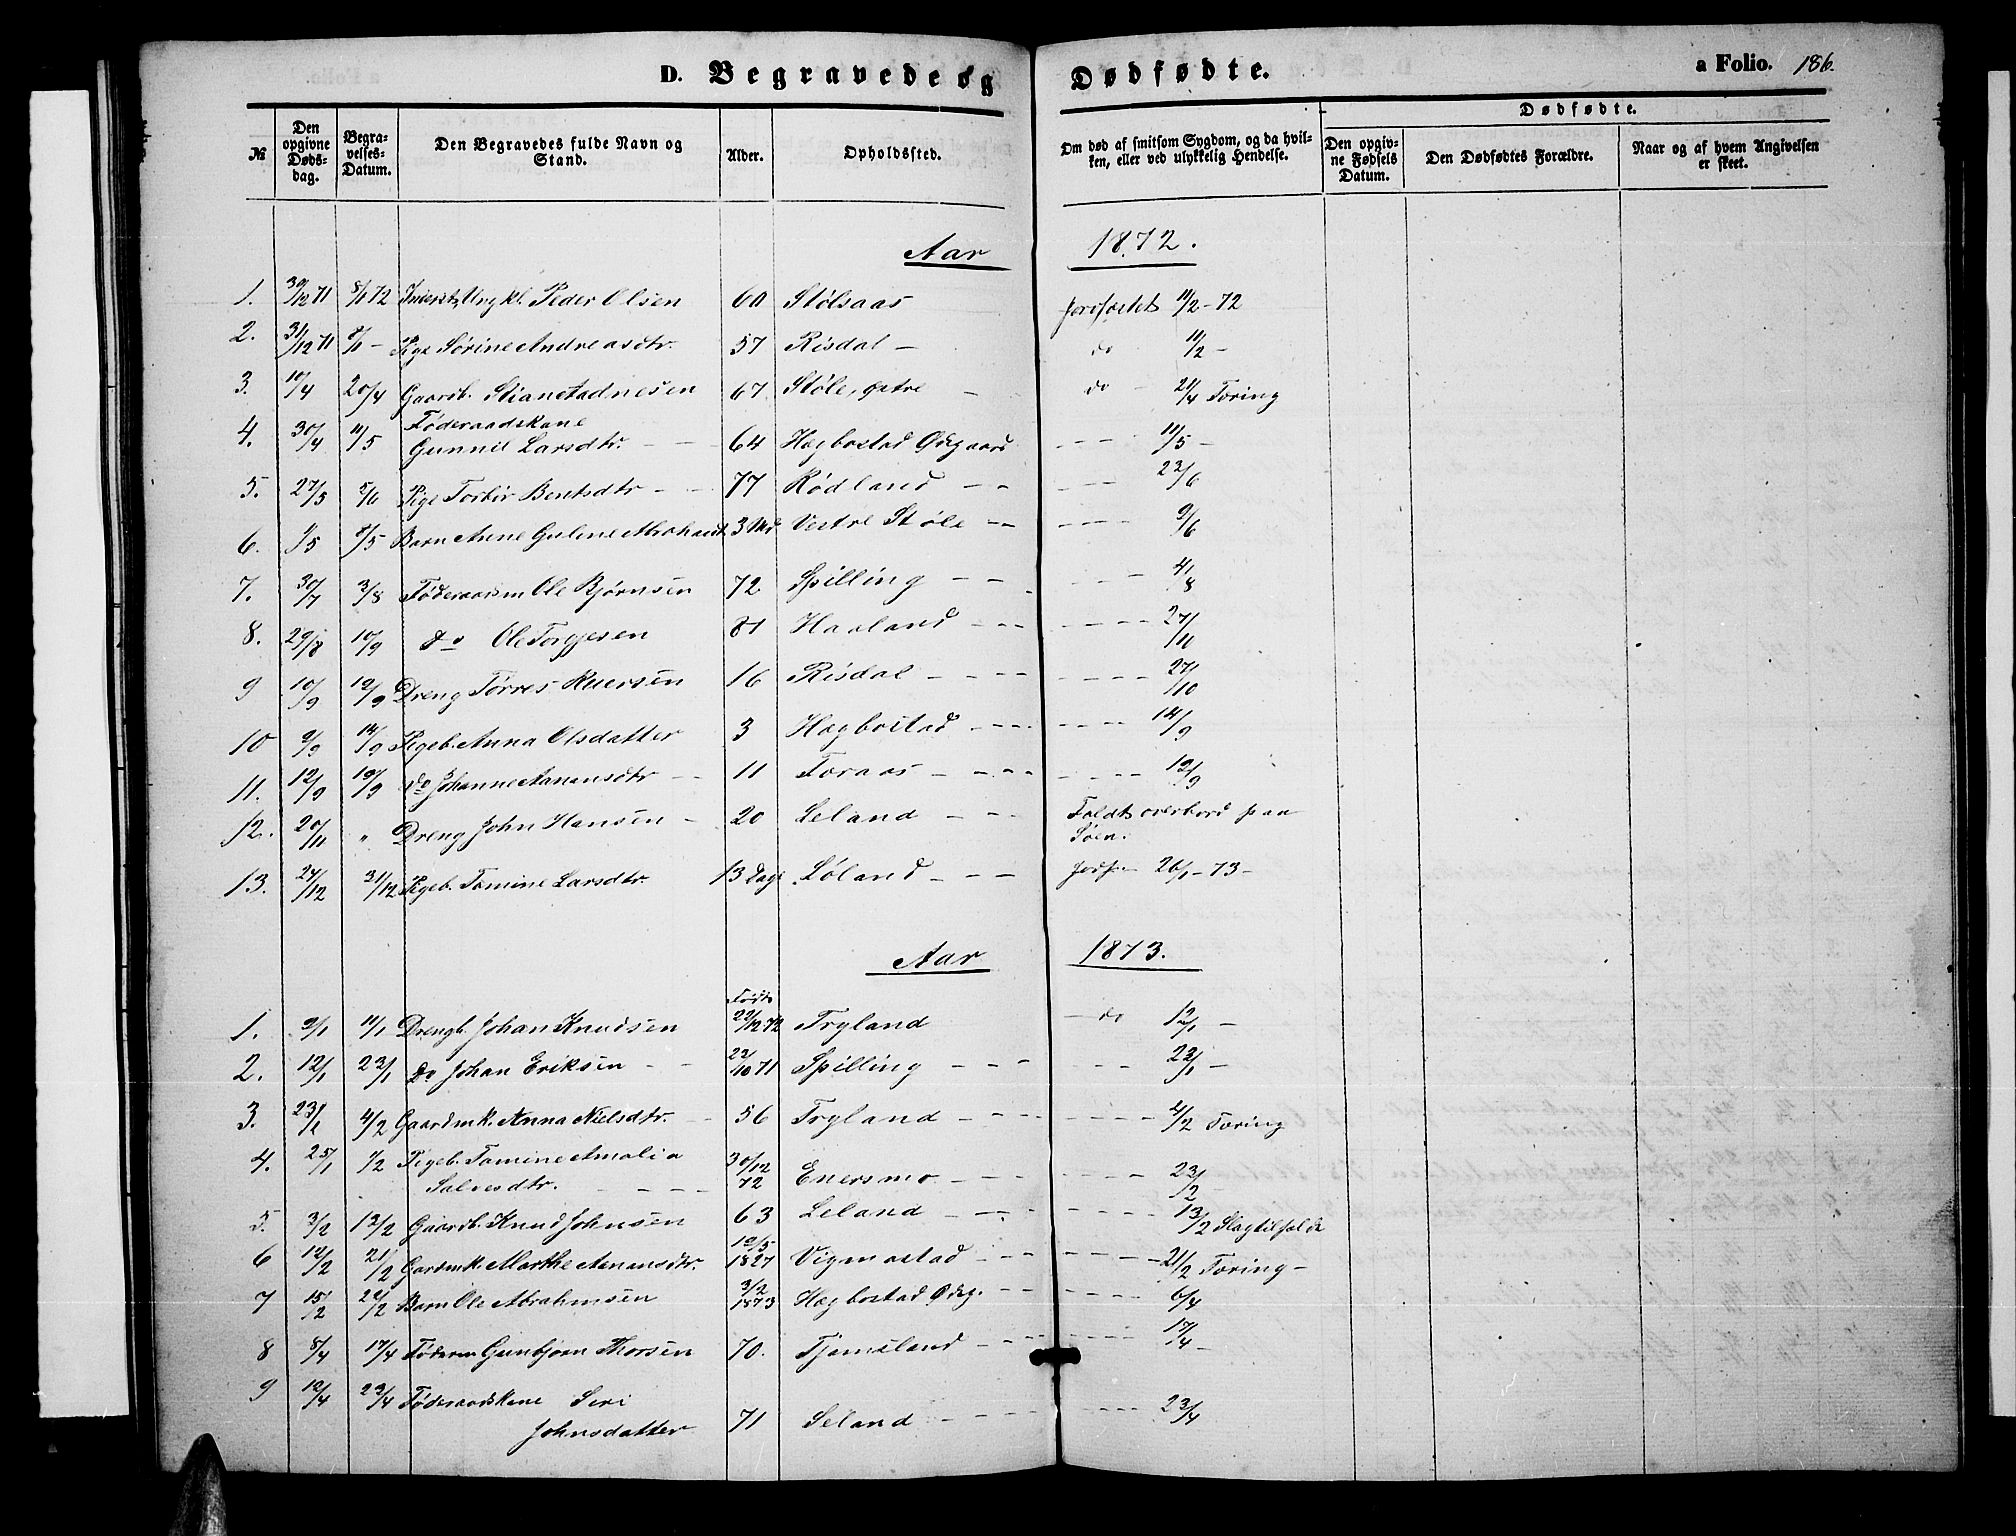 D. Begravede og Dødfødte. a Folio. 186.
№ Den opgivne Dødsdag. Begravelses-Datum. Den Begravedes fulde Navn og Stand. Alder. Opholdssted. Om død af smitsom Sygdom, og da hvilken, eller ved ulykkelig Hendelse. Dødfødte. Den opgivne Fødsels Datum. Den Dødfødtes Forældre. Naar og af hvem Angivelsen er skeet.
Aar 1872.
1. 30/12 71 8/1 72 Ungkl. Peder Olsen 60 Stølsaas jordfæstet 11/2-72
2. 31/12 71 8/1 - Pige Sørine Andreasdtr. 57 Risdal - do 11/2 -
3. 10/4 20/4 Gaardb. Stian Stadnesen 67 Støle, østre - do - 21/4 Tæring
4. 30/4 11/5 Føderaadskone
Gunnil Larsdtr. - - 64 Hægbostad Ødegaard - - - 11/5 -
5. 27/5 5/6 Pige Torbir Bentsdtr - - 77 Rødland - - - - - 23/6
6. 1/5 8/5 Barn Anne Guline 3 Md Vestre Støle - - - - - - 9/6
7. 30/7 3/8 Føderaadsm Ole Bjørnsen 72 Spilling - - - - - - 4/8
8. 29/8 10/9 do Ole Torgjesen 81 Haaland - - - - - - - 27/10
9 10/9 19/9 Dreng Tørres 16 Risdal - - - - - - - - 27/10
10 9/9 14/9 Pigeb. Anna Olsdatter 3 Hægbostad - - - - - - - 14/9
11. 12/9 19/9 do Johanne Aanensdtr - - 11 Foraas - - - - - - - - 19/9
12. 20/11 " Dreng John Hansen - 20 Leland - - - Faldt overbord paa
Søen.
13. 24/12 31/12 Pigeb. Tomine Larsdtr. 13 Dage Løland - - - jordf. 26/1-73-
Aar 1873.
Født
1. 9/1 11/1 Drengb. Johan Knudsen 29/12 72 Tryland - do 12/1 -
2. 12/1 23/1 do Johan Eriksen - - 23/10 71 Spilling - - - - - - 23/1 -
3. 23/1 4/2 Gaardmk. Anna Nielsdtr. - 56 Tryland - - - - - - 4/2 Tæring
4. 25/1 1/2 Pigeb. Tomine Amalia
Salvesdtr. - - - - 30/12 72 Enersmo - - - - - - 23/2 -
5. 3/2 12/2 Gaardb. Knud Johnsen 63 Leland - - - - - - - 13/2 Slagtilfælde
6 12/2 21/2 Gardmk. Marthe Aanensdtr. 19/5 1827 Vigmostad - - - - - - - 21/2 Tæring -
7 15/2 22/2 Barn Ole Abrahmsen 3/2 1873 Hægbostad Ødeg. - - - - - - 6/4
8 8/4 17/4 Føderm Gunbjørn Thorsen 70. Tjomsland - - - - - - - 17/4 -
9 12/4 23/4 Føderaadskone Siri
Johnsdatter 71 Seland - - - - - - - 23/4